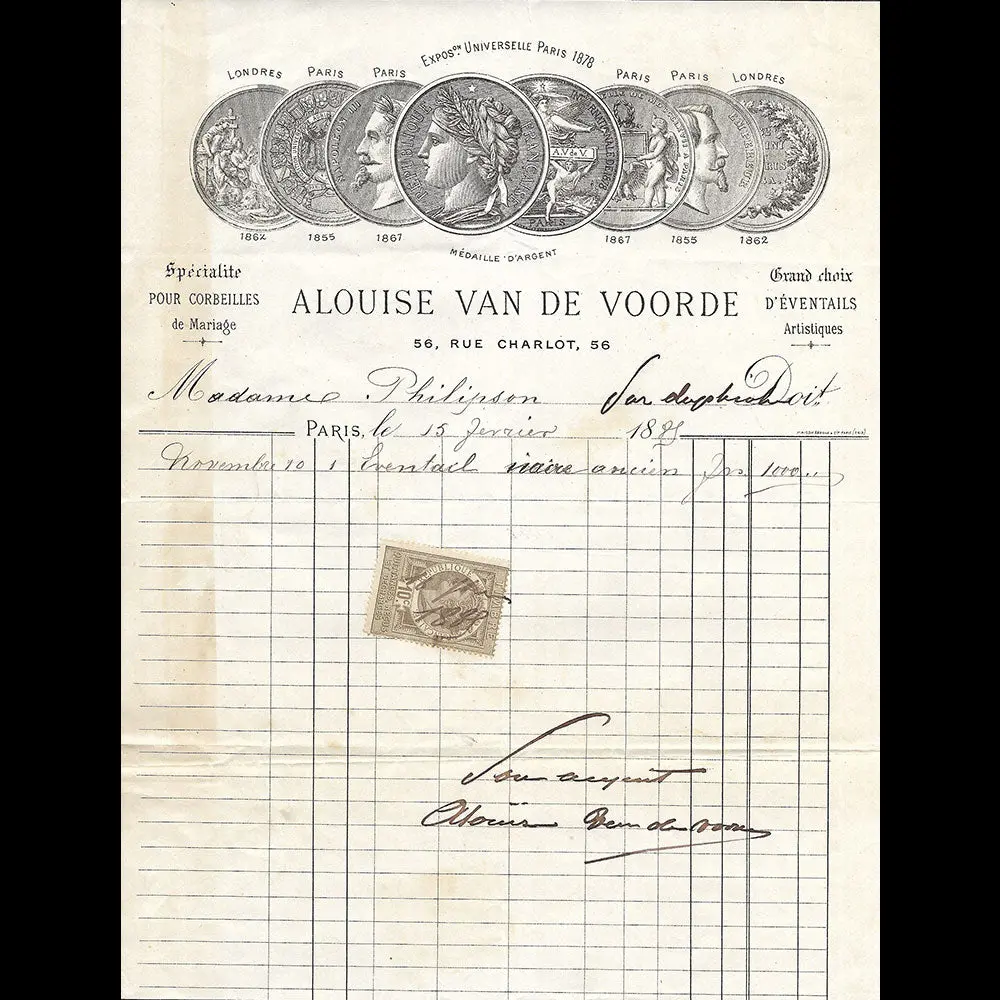 Exposon Universelle Paris 1878
LONDRES PARIS PARIS PARIS PARIS LONDRES
NAPOLEON III
REPUBLIQUE FRANÇAISE
A.V.de V.
PARIS
EMPEREUR
1862 1855 1867 1867 1855 1862
MÉDAILLE D'ARGENT
Spécialité
POUR CORBEILLES
de Mariage
ALOUISE VAN DE VOORDE
56, RUE CHARLOT, 56
Grand choix
D'ÉVENTAILS
Artistiques
Madame Philipson Doit
PARIS, le 15 fevrier 18
Novembre 10 1 Eventail ivoire ancien frs. 1000
RÉPUBLIQUE
TIMBRE
Alouise Van de Voorde